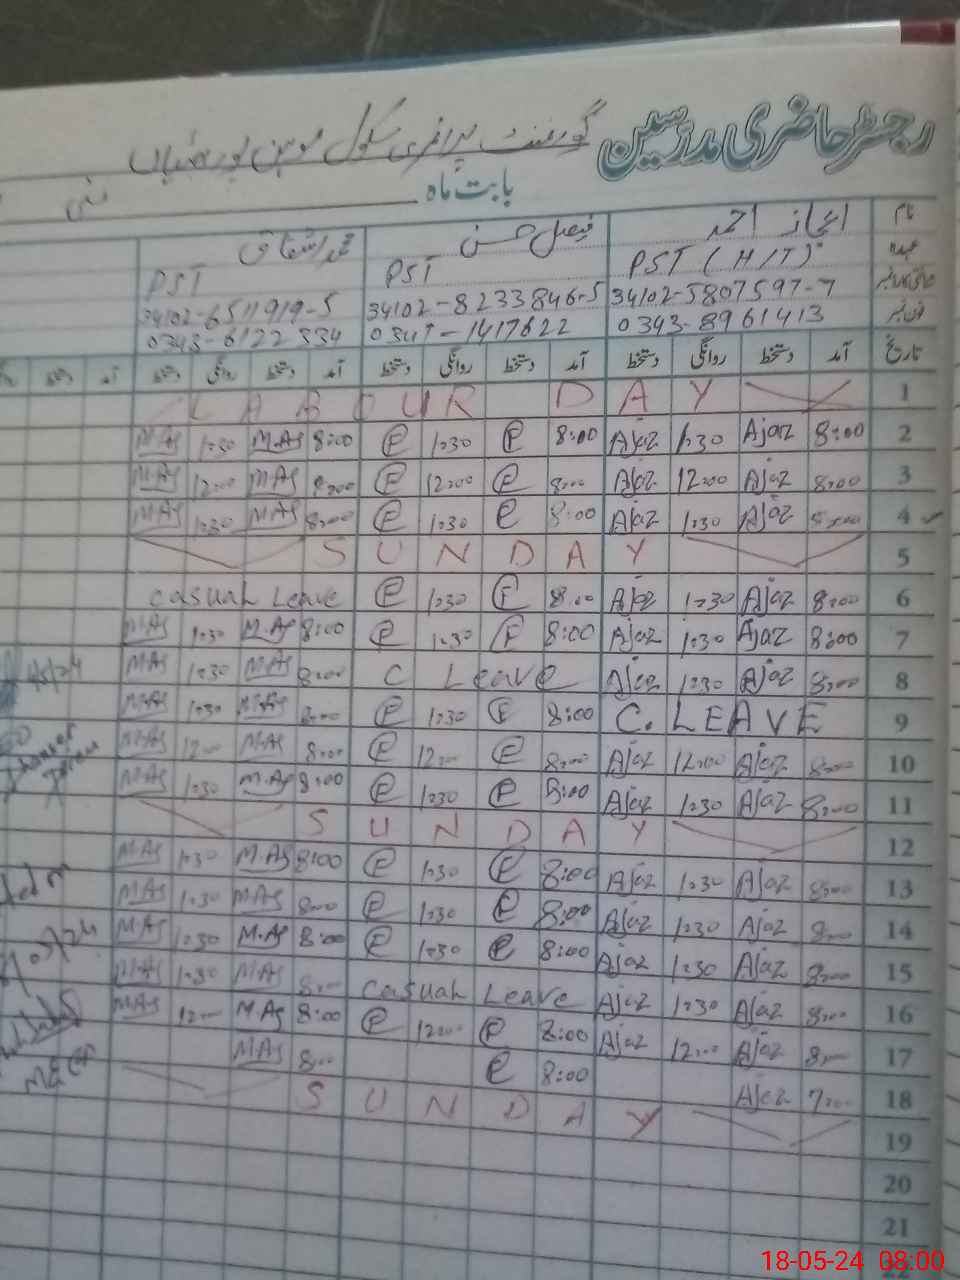 رجسٹر حاضری مدرسین گورنمنٹ پرائمری سکول
بابت ماہ مئی
نام اعجاز احمد فیصل حسن محمد اشتاق
عہدہ PST (H/T) PST PST
34102-5807597-7 34102-8233846-5 34102-6511919-5
فون نمبر 0343-8961413 1417622 0343-6122334
تاریخ آمد دستخط روانگی دستخط آمد دستخط روانگی دستخط آمد دستخط روانگی دستخط آمد دستخط
1 LABOUR DAY
2 8:00 Ajaz 1:30 Ajaz 8:00 F 1:30 F 8:00 M.As 1:30 M.As
3 8:00 Ajaz 12:00 Ajaz 8:00 F 12:00 F 8:00 M.As 12:00 M.As
4 Ajaz 1:30 Ajaz 8:00 F 1:30 F 8:00 M.As 1:30 M.As
5 SUNDAY
6 8:00 Ajaz 1:30 Ajaz 8:00 F 1:30 F Casual Leave
7 8:00 Ajaz 1:30 Ajaz 8:00 F 1:30 F 8:00 M.As 1:30 M.As
8 8:00 Ajaz 1:30 Ajaz C Leave 8:00 M.As 1:30 M.As
9 C. LEAVE 8:00 F 1:30 F 8:00 M.As 1:30 M.As
10 8:00 Ajaz 12:00 Ajaz 8:00 F 12:00 F 8:00 M.As 12:00 M.As
11 8:00 Ajaz 1:30 Ajaz 8:00 F 1:30 F 8:00 M.As 1:30 M.As
12 SUNDAY
13 8:00 Ajaz 1:30 Ajaz 8:00 F 1:30 F 8:00 M.As 1:30 M.As
14 8:00 Ajaz 1:30 Ajaz 8:00 F 1:30 F 8:00 M.As 1:30 M.As
15 8:00 Ajaz 1:30 Ajaz 8:00 F 1:30 F 8:00 M.As 1:30 M.As
16 8:00 Ajaz 1:30 Ajaz Casual Leave 8:00 M.As 1:30 M.As
17 8:00 Ajaz 12:00 Ajaz 8:00 F 12:00 F 8:00 M.As 12:00 M.As
18 7:00 Ajaz 8:00 F 8:00 M.As
19 SUNDAY
20
21
18-05-24 08:00